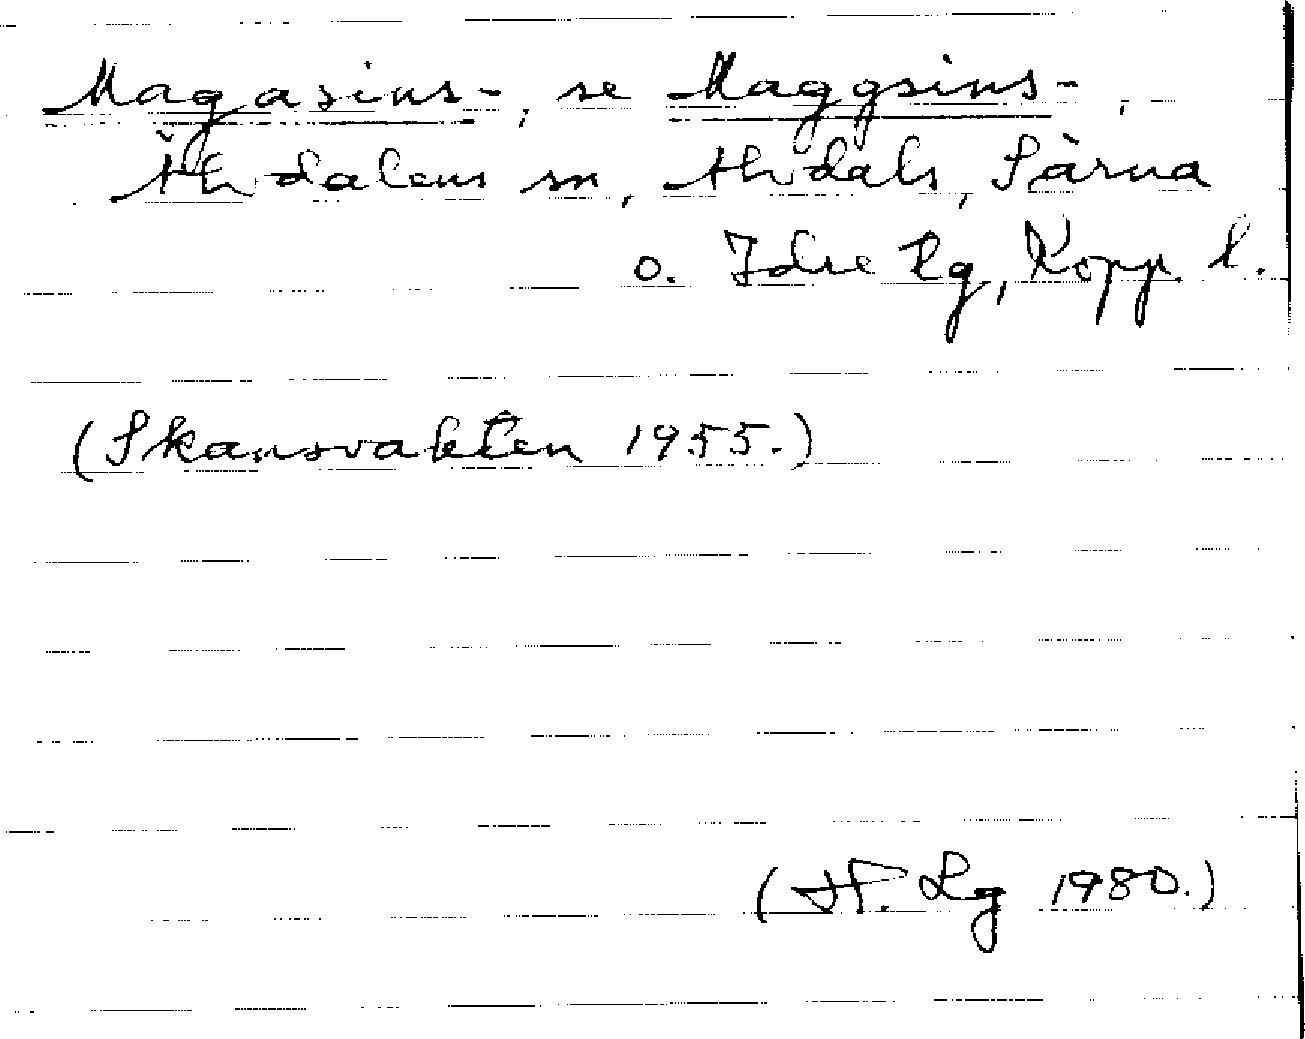 Magasins-, se Maggsins-,
Älvdalens sn, Älvdals, Särna
o. Idre tg, Kopp. l.
(Skansvakten 1955.)
(H. Lg 1980.)